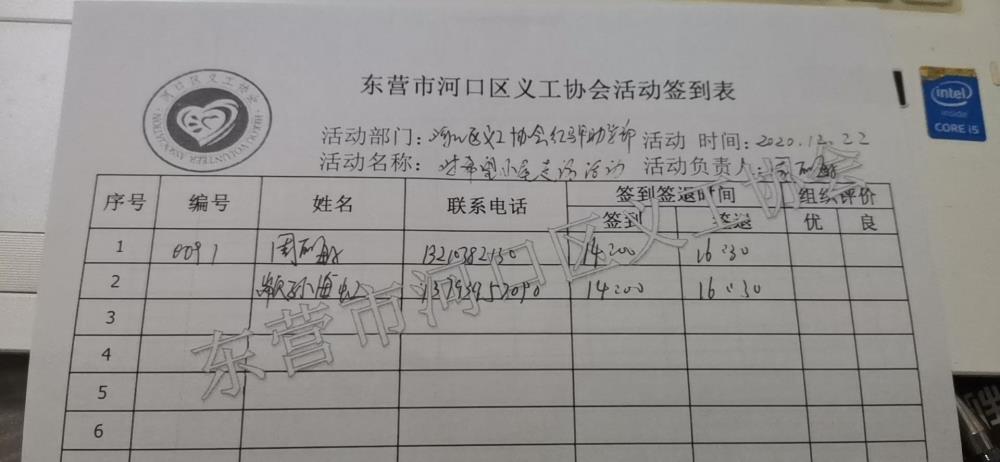 东营市河口区义工协会活动签到表
活动部门：河口区义工协会红驿助学部 活动 时间：2020.12.22
活动名称：走访活动 活动负责人：周
序号 编号 姓名 联系电话 签到签退时间 组织评价
签到 签退 优 良
1 0091 周 13210382150 14:00 16:30
2 海虹 14:00 16:30
3
4
5
6
东营市河口区义工协会
河口区义工协会
HEKOU VOLUNTEER ASSOCIATION
intel
inside
CORE i5